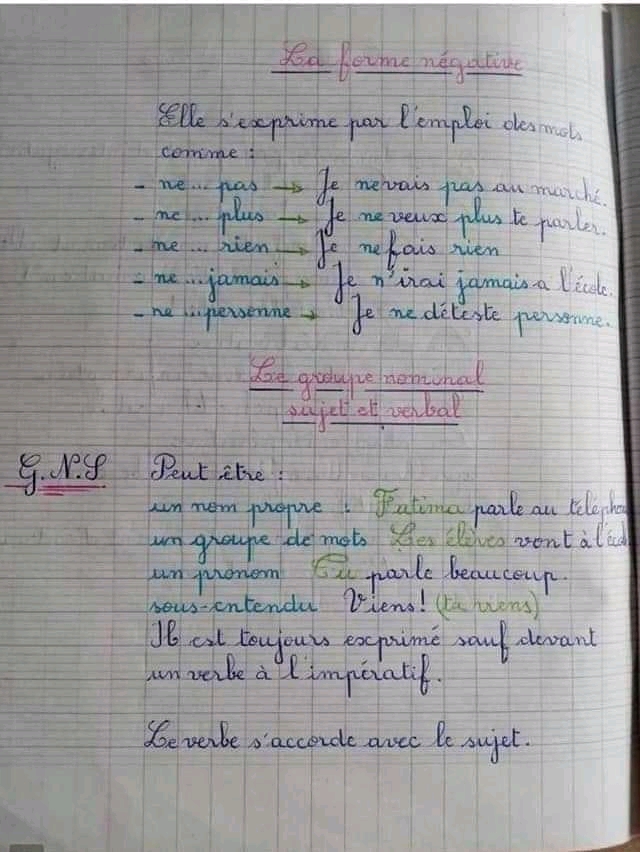 La forme négative
Elle s'exprime par l'emploi des mots
comme :
- ne ... pas → Je ne vais pas au marché.
- ne ... plus → Je ne veux plus te parler.
- ne ... rien → Je ne fais rien
- ne ... jamais → Je n'irai jamais a l'école.
- ne ... personne → Je ne déteste personne.
Le groupe nominal
sujet et verbal
G.N.S Peut être :
un nom propre : Fatima parle au télépho
un groupe de mots Les élèves vont à l'écol
un pronom Tu parle beaucoup.
sous-entendu Viens! (tu viens)
Il est toujours exprimé sauf devant
un verbe à l'impératif.
Le verbe s'accorde avec le sujet.